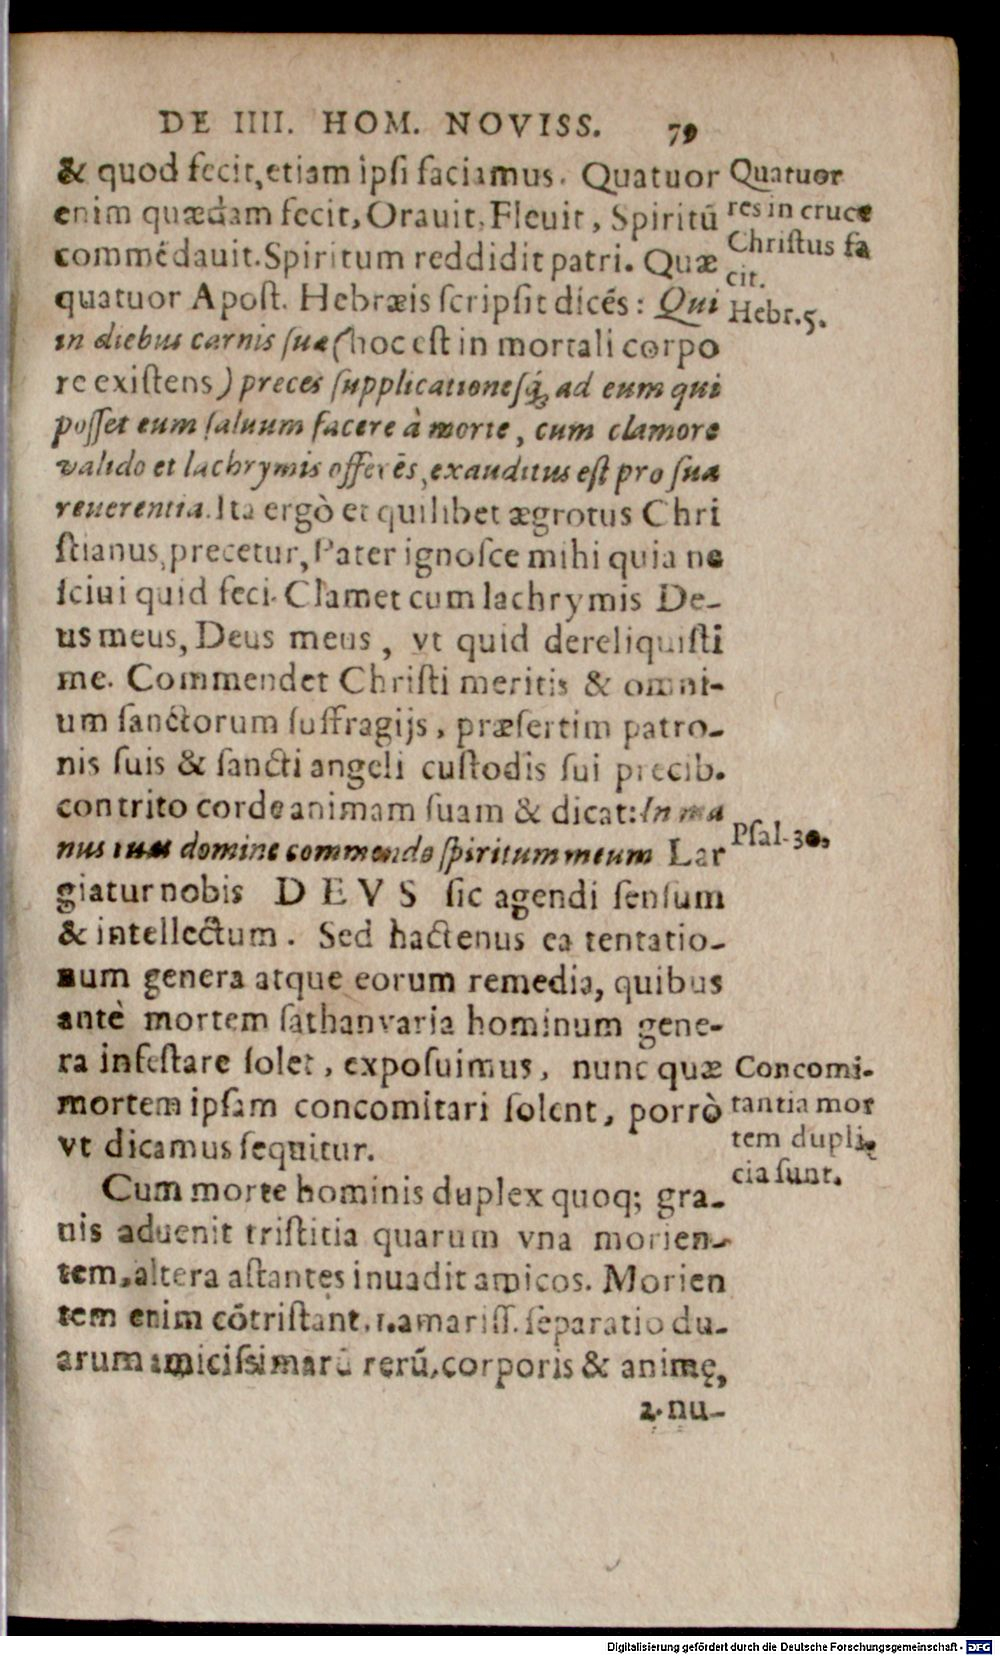 DE IIII. HOM. NOVISS. 79
& quod fecit, etiam ipsi faciamus. Quatuor
enim quædam fecit, Orauit, Fleuit, Spiritū
commēdauit. Spiritum reddidit patri. Quæ
quatuor Apost. Hebræis scripsit dicēs: Qui
in diebus carnis suæ (hoc est in mortali corpo
re existens) preces supplicationesq́; ad eum qui
posset eum saluum facere à morte, cum clamore
valido et lachrymis offerēs, exauditus est pro sua
reuerentia. Ita ergò et quilibet ægrotus Chri
stianus, precetur, Pater ignosce mihi quia ne
sciui quid feci. Clamet cum lachrymis De-
us meus, Deus meus, vt quid dereliquisti
me. Commendet Christi meritis & omni-
um sanctorum suffragijs, præsertim patro-
nis suis & sancti angeli custodis sui precib.
contrito corde animam suam & dicat: In ma
nus tuas domine commendo spiritum meum Lar
giatur nobis DEVS sic agendi sensum
& intellectum. Sed hactenus ea tentatio-
num genera atque eorum remedia, quibus
antè mortem sathan varia hominum gene-
ra infestare solet, exposuimus, nunc quæ
mortem ipsam concomitari solent, porrò
vt dicamus sequitur.
Cum morte hominis duplex quoq; gra-
uis aduenit tristitia quarum vna morien-
tem, altera astantes inuadit amicos. Morien
tem enim cōtristant, 1. amariss. separatio du-
arum amicissimarū rerū, corporis & animę,
2. nu-
Quatuor
res in cruce
Christus fa
cit.
Hebr. 5.
Psal. 30.
Concomi-
tantia mor
tem dupli-
cia sunt.
Digitalisierung gefördert durch die Deutsche Forschungsgemeinschaft - DFG